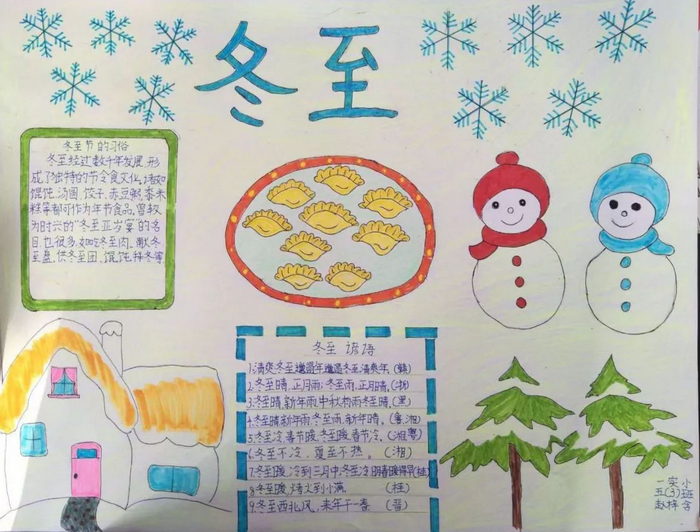 冬至
冬至节的习俗
冬至经过数千年发展形
成了独特的节令食文化,诸如
馄饨、汤圆、饺子、赤豆粥、黍米
糕等都可作为年节食品,曾较
为时兴的“冬至亚岁宴”的名
目也很多,如吃冬至肉、献冬
至盘、供冬至团、馄饨拜冬等
冬至 谚语
1.清爽冬至邋遢年,邋遢冬至清爽年。
2.冬至晴,正月雨,冬至雨,正月晴。
3.冬至晴,新年雨,中秋有雨冬至晴。(黑)
4.冬至晴,新年雨,冬至雨,新年晴。
5.冬至冷,春节暖,冬至暖,春节冷。
6.冬至不冷,夏至不热。(湘)
7.冬至暖,冷到三月中,冬至冷,明春暖得早(桂)
8.冬至暖,烤火到小满(桂)
9.冬至西北风,来年干一春(晋)
一实小
五(3)班